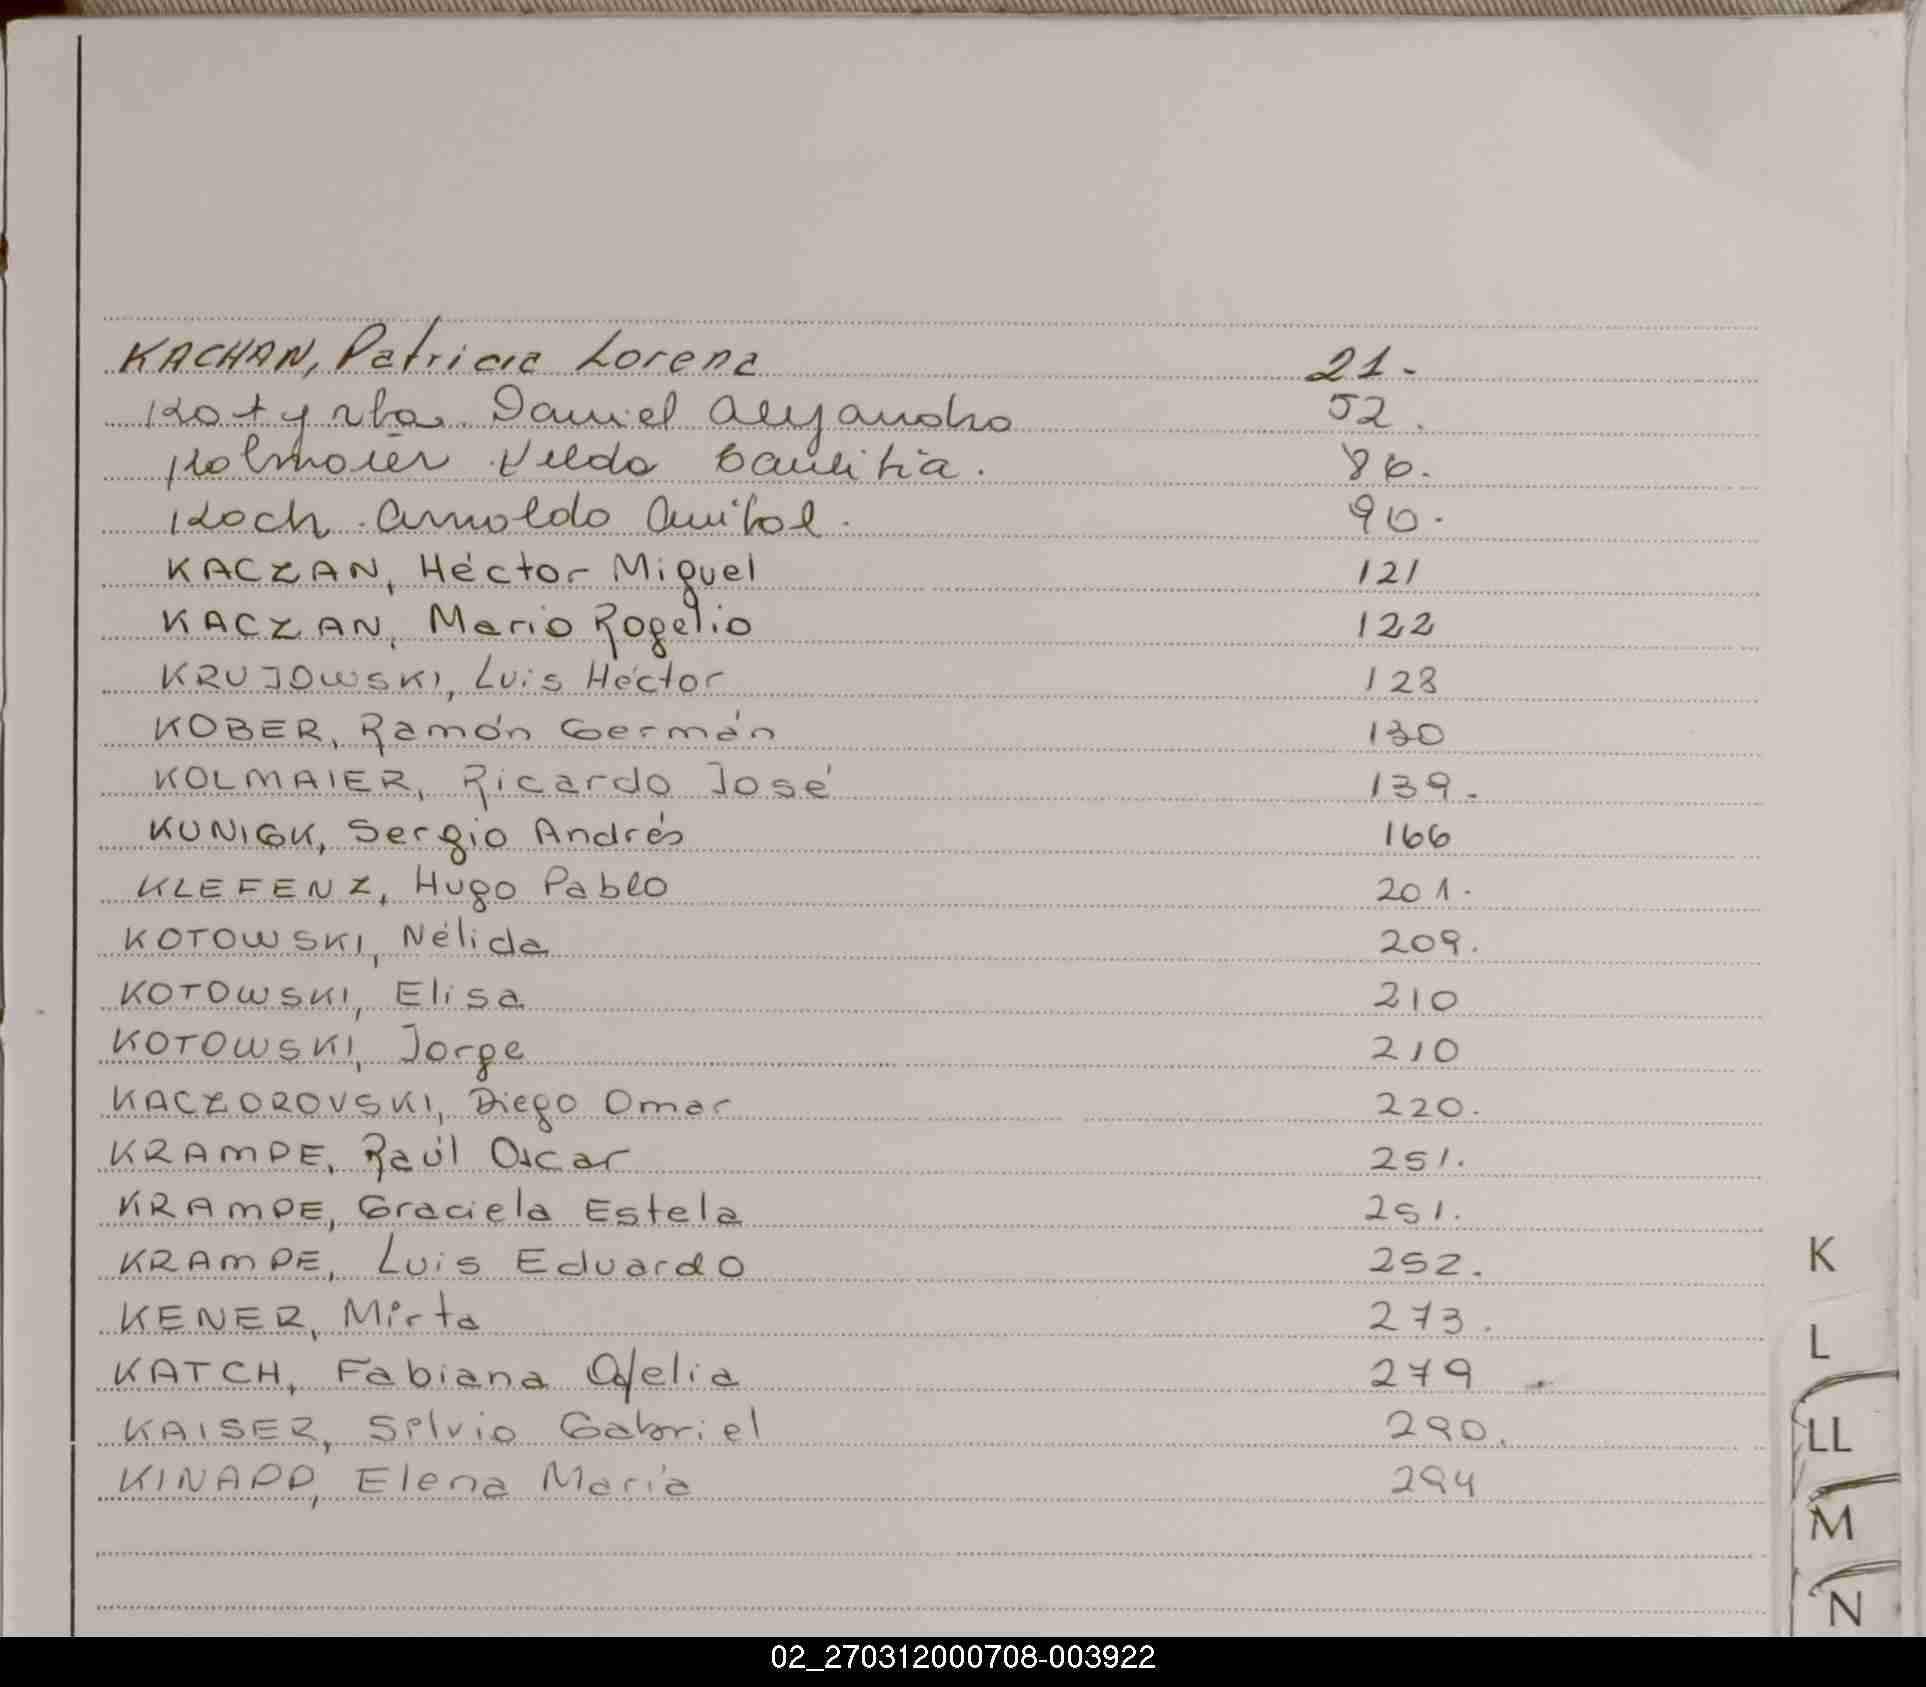 KACHAN, Patricia Lorena 21.
Daniel Alejandro 52.
Kolmaier 86.
Koch Arnoldo Anibal. 90.
KACZAN, Héctor Miguel 121
KACZAN, Mario Rogelio 122
KRUJOWSKI, Luis Héctor 128
KOBER, Ramón Germán 130
KOLMAIER, Ricardo José 139.
KUNIGK, Sergio Andrés 166
KLEFENZ, Hugo Pablo 201.
KOTOWSKI, Nélida 209.
KOTOWSKI, Elisa 210
KOTOWSKI, Jorge 210
KACZOROVSKI, Diego Omar 220.
KRAMPE, Raúl Oscar 251.
KRAMPE, Graciela Estela 251.
KRAMPE, Luis Eduardo 252.
KENER, Mirta 273.
KATCH, Fabiana Ofelia 279
KAISER, Silvio Gabriel 290.
KINAPP, Elena María 294
K
L
LL
M
N
02_270312000708-003922